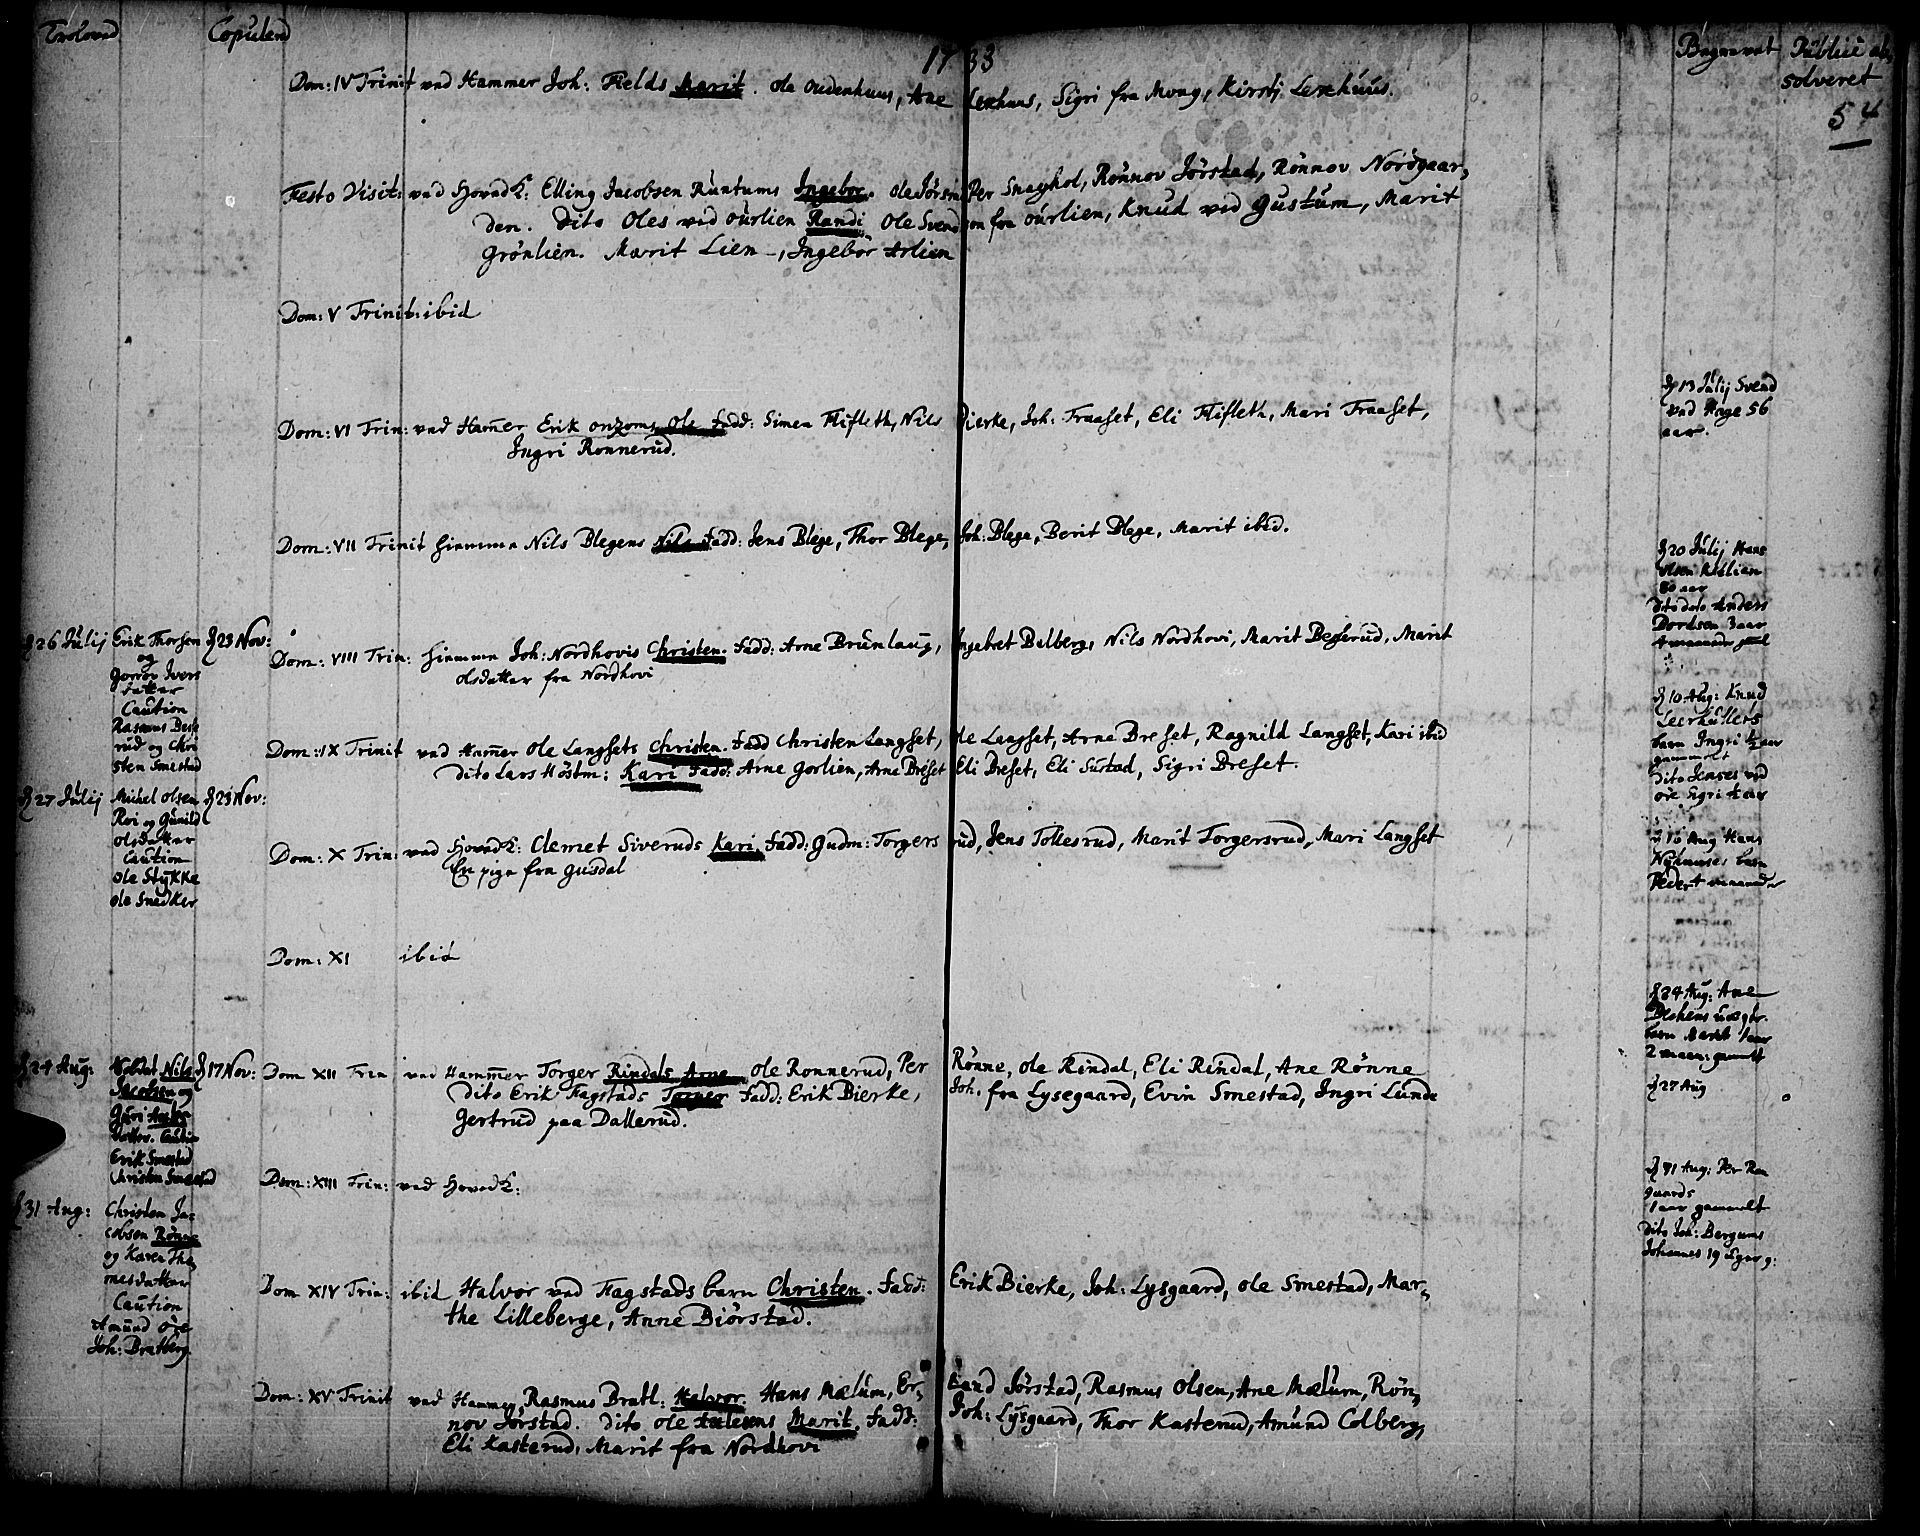 Trolovad Copulerd 1733 Begravet Publicè ab,
solveret
54
Dom: IV Trinit ved Hammer Joh: Fields Marit. Ole Oudenhuus, Ane Lerhuus, Sigri fra Moug, Kirstj Lerhuus.
Festo Visit: ved Hovedk: Elling Jacobsen Runtums Ingebor. Per Snayhol, Rönnov Jörstad, Rönnov Nordgaar,
den. Dito Oles ved Ourlien Randi Ole Svendson fra Ourlien, Knud ved Gustum, Marit
Grönlien. Marit Lien, Ingebor Arlien
Dom: V Trinit: ibid
Dom: VI Trin: ved Hammer Erik Onzoms Ole Fadd: Simen Flifleth, Nils Bierke, Joh: Fraaset, Eli Flifleth, Mari Fraaset,
Ingri Ronnerud.
Dom: VII Trinit hiemmen Nils Blegens Nils Fadd: Jens Blege, Thor Blege, Joh: Blege, Berit Blege, Marit ibid.
Dom: VIII Trin: hiemmen Joh: Nordhovis Christen. Fadd: Arne Brunlaug, Ingebret Balberg, Nils Nordhovi, Marit Beserud, Marit
olsdatter fra Nordhovi
Dom: IX Trinit ved Hammer Ole Langsets Christen. Fadd Christen Langset, Ole Langset, Arne Breset, Ragnild Langset, Kari ibid
Dito Lars Höstm: Kari Fadd: Arne Gorlien, Arne Breset Eli Breset, Eli Sustad, Sigri Breset.
Dom: X Trin: ved Hovedk: Clemet Siveruds Kari, Fadd: Gudm: Torgersrud, Jens Tollesrud, Marit Torgersrud, Mari Langset
En pige fra Gusdal
Dom: XI ibid
Dom XII Trin ved Hammer Torger Rindals Arne Ole Ronnerud, Per Rönne, Ole Rindal, Eli Rindal, Ane Rönne
Dito Erik Fagstads Fadd: Erik Bierke, Joh. fra Lysegaard, Evin Smestad, Ingri Lunde
Gertrud paa Dallerud.
Dom: XIII Trin: ved Hovedk:
Dom XIV Trin: ibid Halvor ved Fagstads barn Christen. Fadd: Erik Bierke, Joh: Lysgaard, Ole Smestad, Mar,
the Lilleberge, Anne Biörstad.
Dom: XV Trinit ved Hammer, Rasmus Bratl: Halvor. Hans Mælum, Er, Jörstad, Rasmus Olsen, Ane Mælum, Rön,
nov Jörstad. Dito Ole Marit. Fadd: Joh: Lysgaard, Thor Kasterud, Amund Colberg,
Eli Kasterud, Marit fra Nordhovi
26 Julij Erik Thorsen 23 Nov:
og
Gorrov Ivers
datter
Caution
Rasmus Bese
rud og Chri
sten Smestad
27 Julij Michel Olsen 23 Nov:
Roi og Gunild
olsdatter
Caution
Ole Stykke
Ole Snedker
24 Aug: Nils 17 Nov:
Jacobsen og
Guri
Erik Smestad
Christen Smestad
31 Aug: Christen Ja=
cobsen Rönne
og Karen Tho
mesdatter
Caution
Amund Öre
Joh: Bratberg
13 Julij Svend
ved Hage 56
aar.
20 Julij Hans
olsen
80 aar
dito Anders
3 aar
10 Aug: Knud
barn Ingri 1/2 aar
gammelt
Dito Jenses ved
Öre Sigri
16 Aug Hans
barn
Peder
24 Aug: Ane
barn Marit 1 aar
2 maan: gamelt
27 Aug
31 Aug: Per
1 aar gammelt
Dito Joh: Bergums
Johannes 19